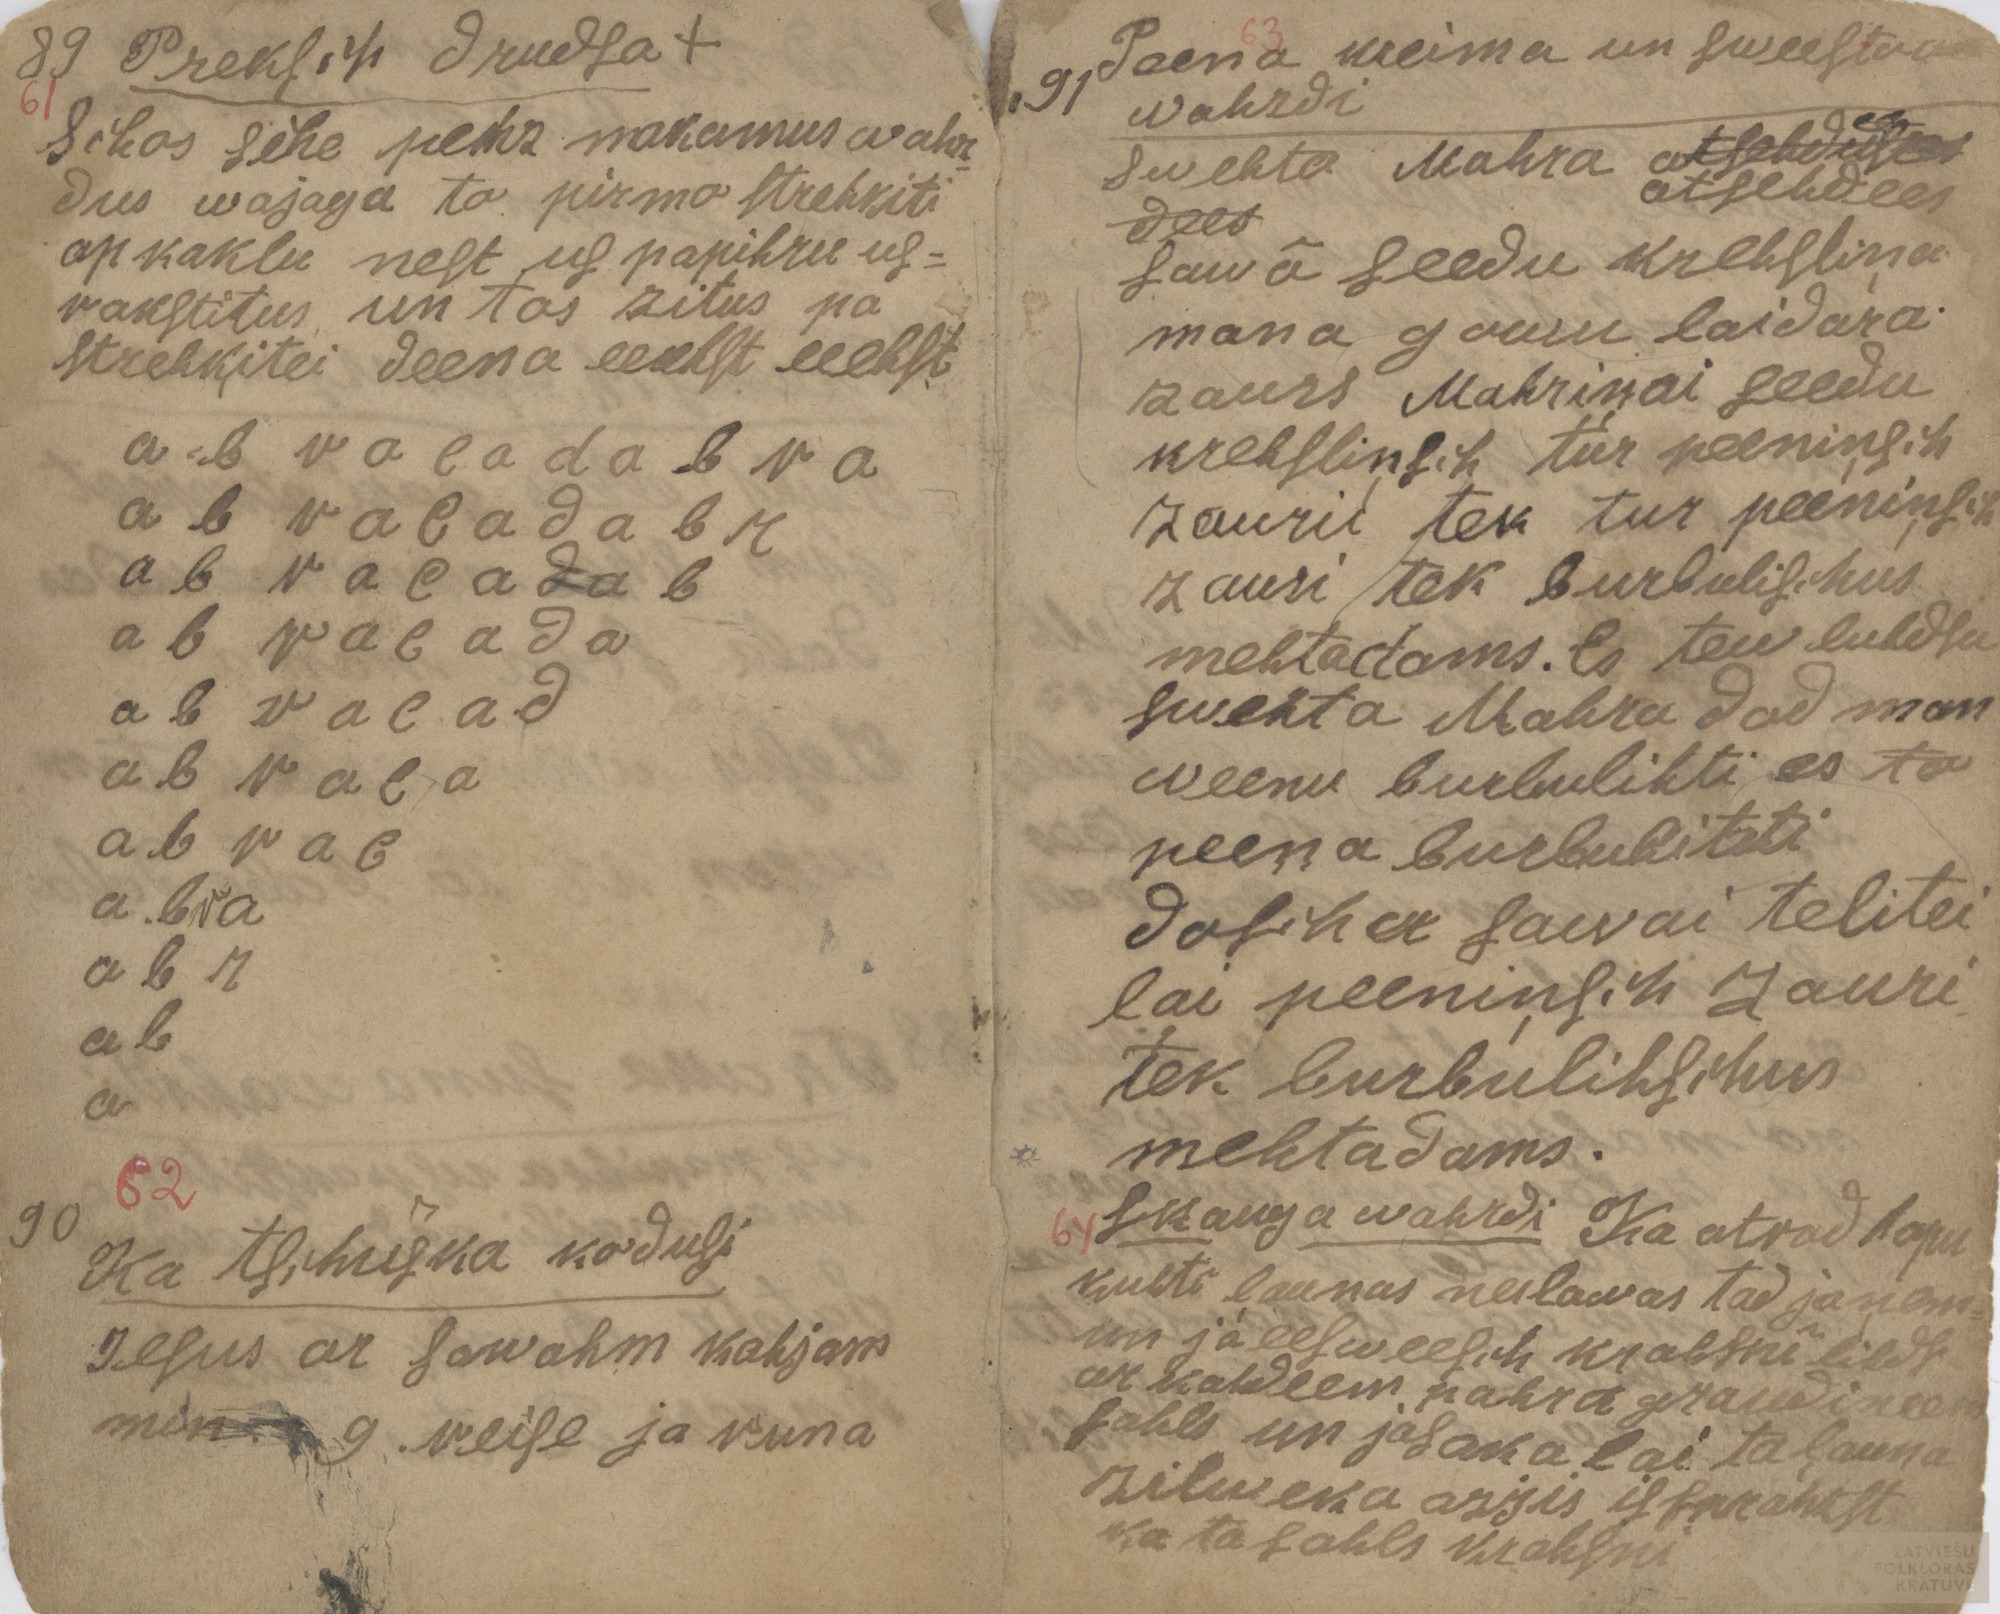 89 Preksch drudsa +
61
Schos sche pehz nakamus wahr-
dus wajaga to pirmo strehkiti
ap kaklu nest us papihru us=
rakstitus un tos zitus pa
strehkitei deena eeehst eeehst
a b r a c a d a b r a
a b r a c a d a b r
a b r a c a d a b
a b r a c a d a
a b r a c a d
a b r a c a
a b r a c
a b r a
a b r
a b
a
62
90
Ka tschuska kodusi
Jesus ar sawahm kahjam
min 9 reise ja runa
63
91 Peena kreima un sweesta
wahrdi
Swehta Mahra
atsehdees
dees
sawā seedu krehslina
mana gowu laidara
zaurs Mahriņai seedu
krehsliņsch tur peeniņsch
zauri tek tur peeniņsch
zauri tek burbulischus
mehtadams. Es tew luhdsu
swehta Mahra dod man
weenu burbulihti es to
peena burbulititi
doschu sawai telitei
lai peeniņsch zauri
tek burbulihschus
mehtadams.
64 Skauga wahrdi Ka atrod kapu
kulti launas neslawas tad janem=
un jaeesweesch krahsni lihds
ar kahdeem pahra graudineem
sahls un jasaka lai ta launa
zilweka azis issprahkst
ka ta sahls krahsni
LATVIEŠU
FOLKLORAS
KRĀTUVE